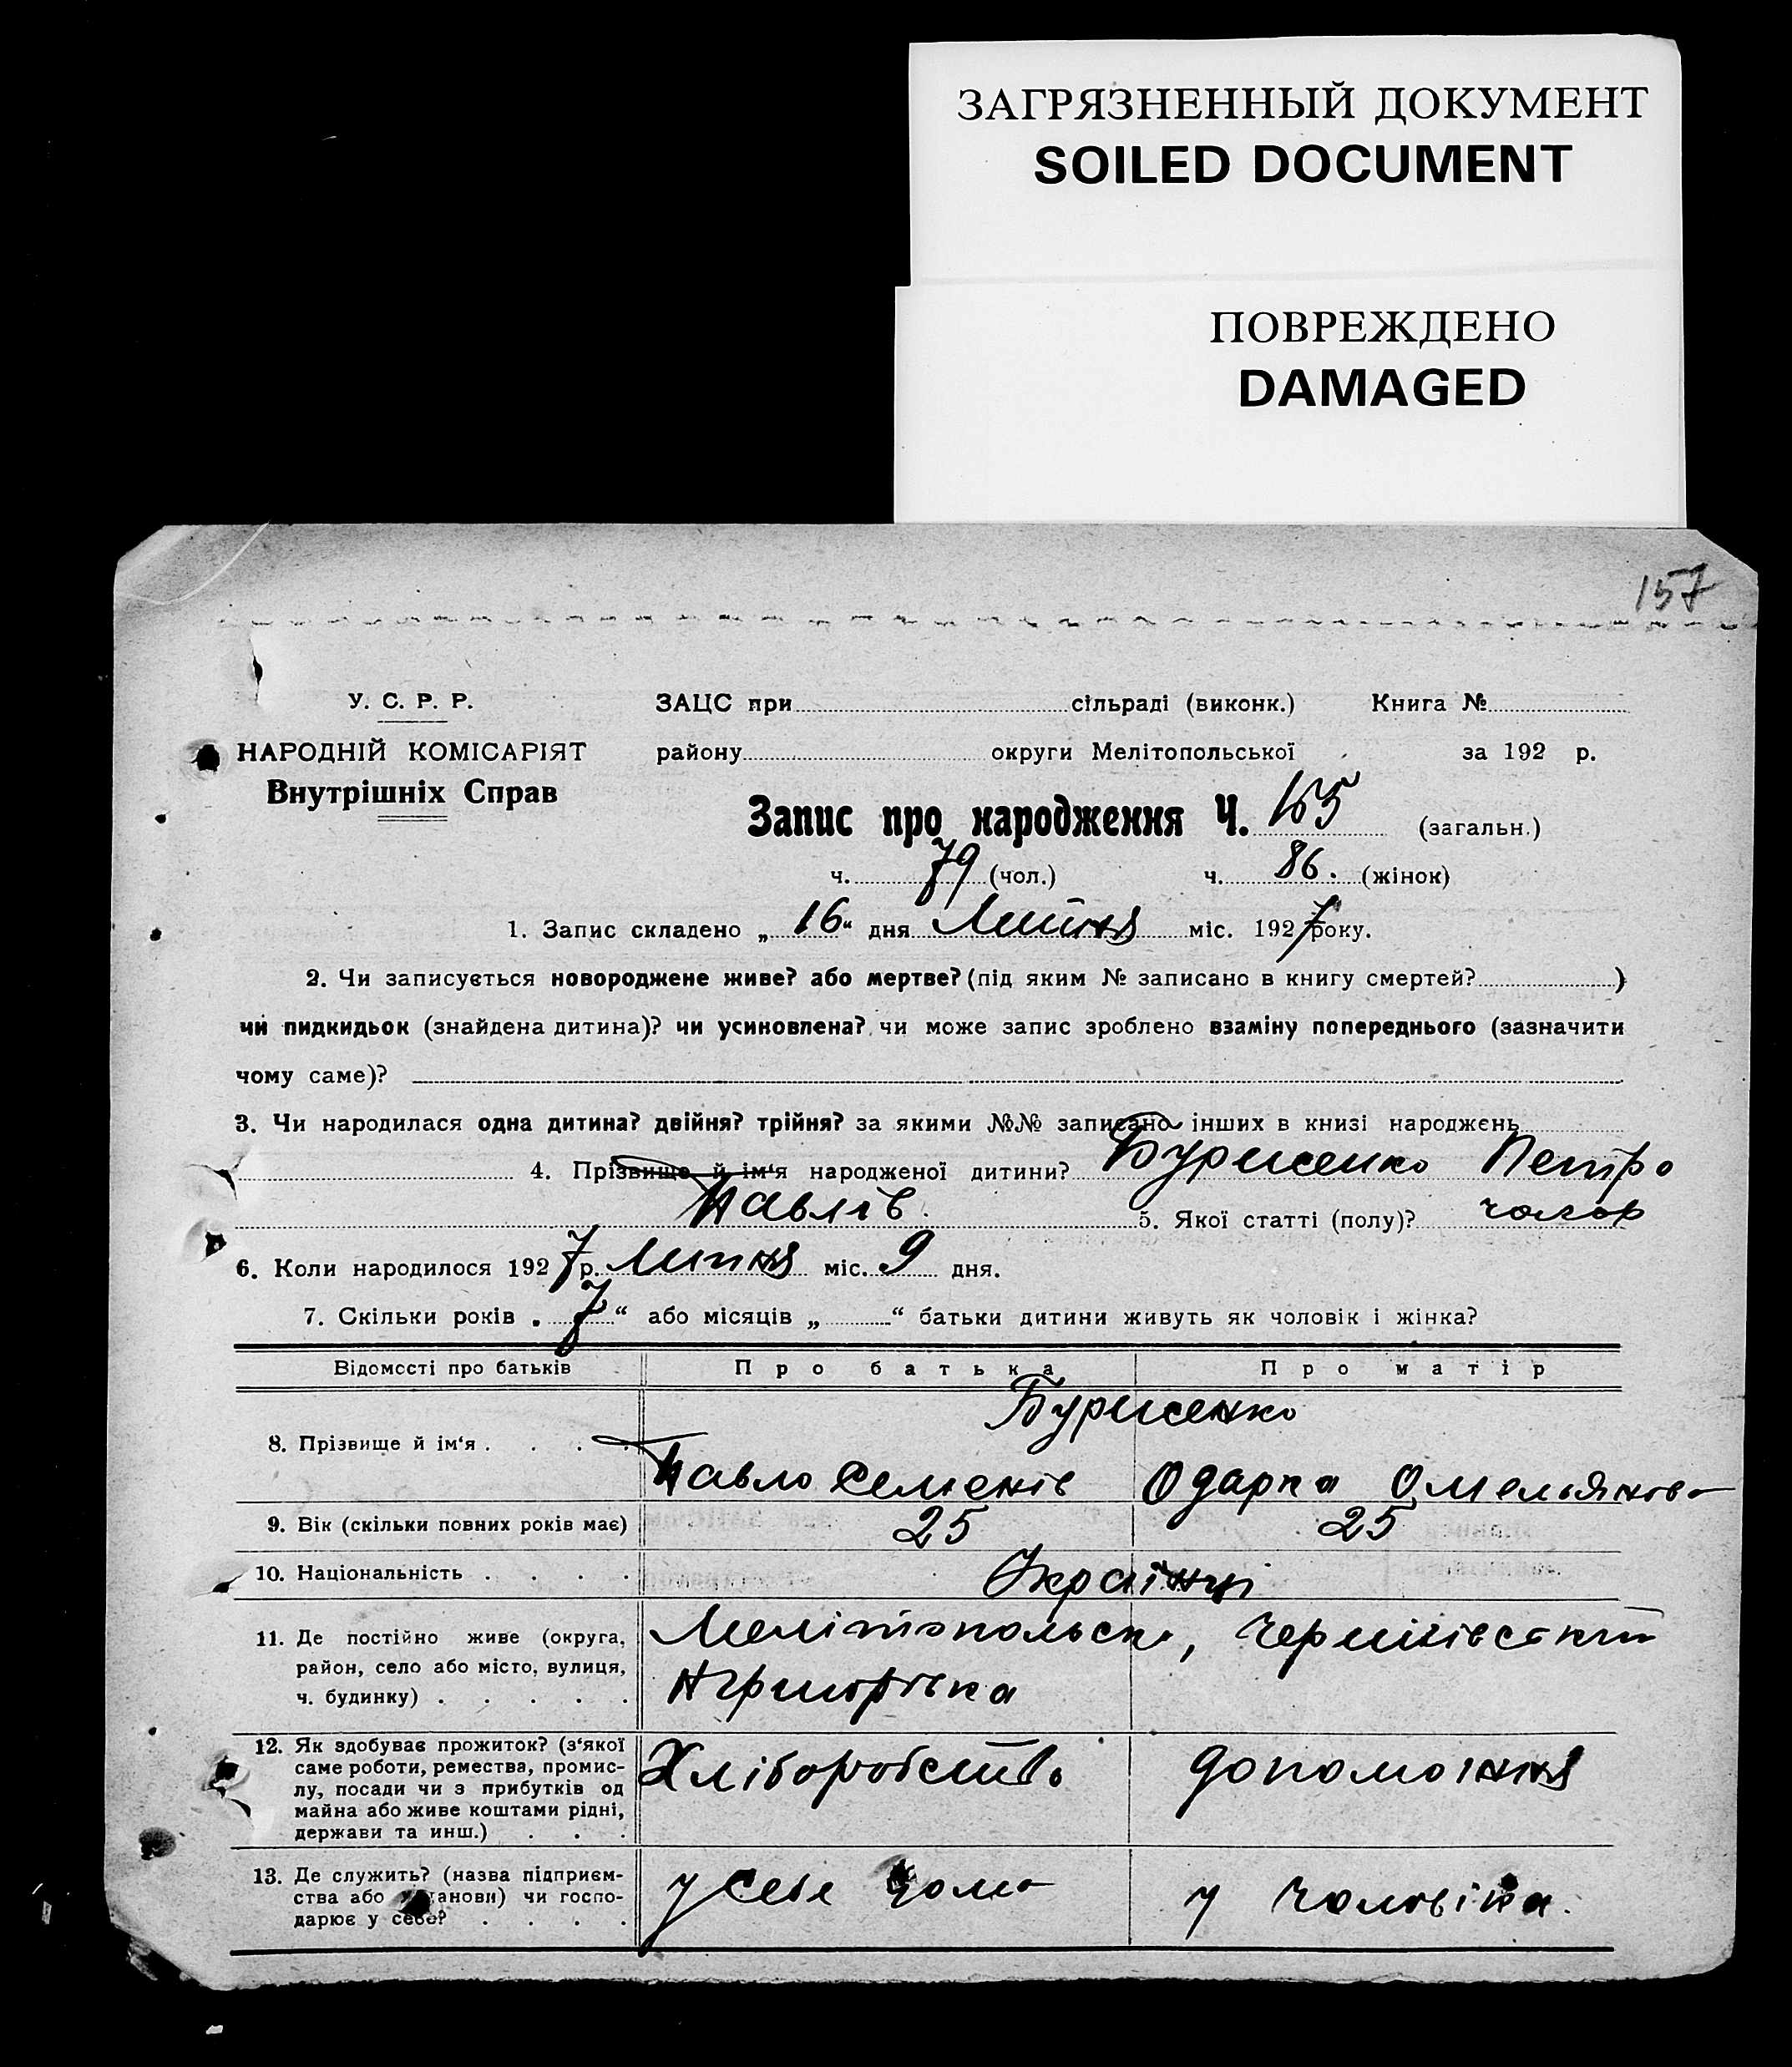 ЗАГРЯЗНЕННЫЙ ДОКУМЕНТ
SOILED DOCUMENT
ПОВРЕЖДЕНО
DAMAGED
157
У. С. Р. Р.
НАРОДНІЙ КОМІСАРІЯТ
Внутрішніх Справ
ЗАЦС при сільраді (виконк.) Книга №
району округи Мелітопольської за 192 р.
Запис про народження Ч. 165 (загальн.)
ч. 79 (чол.) ч. 86. (жінок)
1. Запис складено „16“ дня Липня міс. 1927 року.
2. Чи записується новороджене живе? або мертве? (під яким № записано в книгу смертей? )
чи пидкидьок (знайдена дитина)? чи усиновлена? чи може запис зроблено взаміну попереднього (зазначити
чому саме)?
3. Чи народилася одна дитина? двійня? трійня? за якими №№ записано інших в книзі народжень
4. Прізвище й ім‘я народженої дитини? Бурисенко Петро
Павлів. 5. Якої статті (полу)? чолов
6. Коли народилося 1927 р. Липня міс. 9 дня.
7. Скільки років „7“ або місяців „ “ батьки дитини живуть як чоловік і жінка?
Відомості про батьків Про батька Про матір
Бурисенко
8. Прізвище й ім‘я . . . . Павло Семенів Одарка Омельянова
9. Вік (скільки повних років має) 25 25
10. Національність . . . . Українці
11. Де постійно живе (округа, район, село або місто, вулиця, ч. будинку) . . . . . Мелітопольськ,
12. Як здобуває прожиток? (з‘якої саме роботи, ремества, промислу, посади чи з прибутків од майна або живе коштами рідні, держави та инш.) . . . Хліборобство допомогання
13. Де служить? (назва підприємства або установи) чи господарює у себе? . . . . у себе дома у чоловіка.